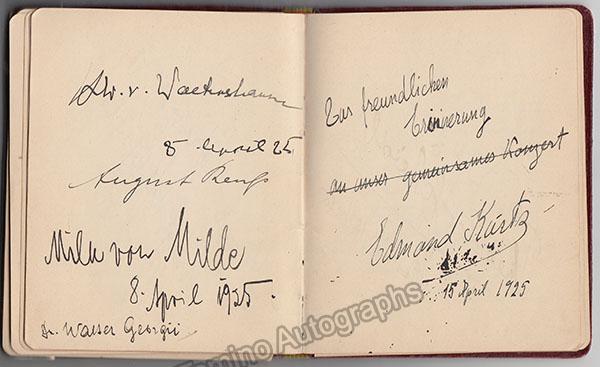 8 April 25
August Reuß
Milu von Milde
8. April 1925.
Dr. Walter Georgii
Zur freundlichen
Erinnerung
an unser gemeinsames Konzert
Edmund Kurtz
15 April 1925
Tamino Autographs